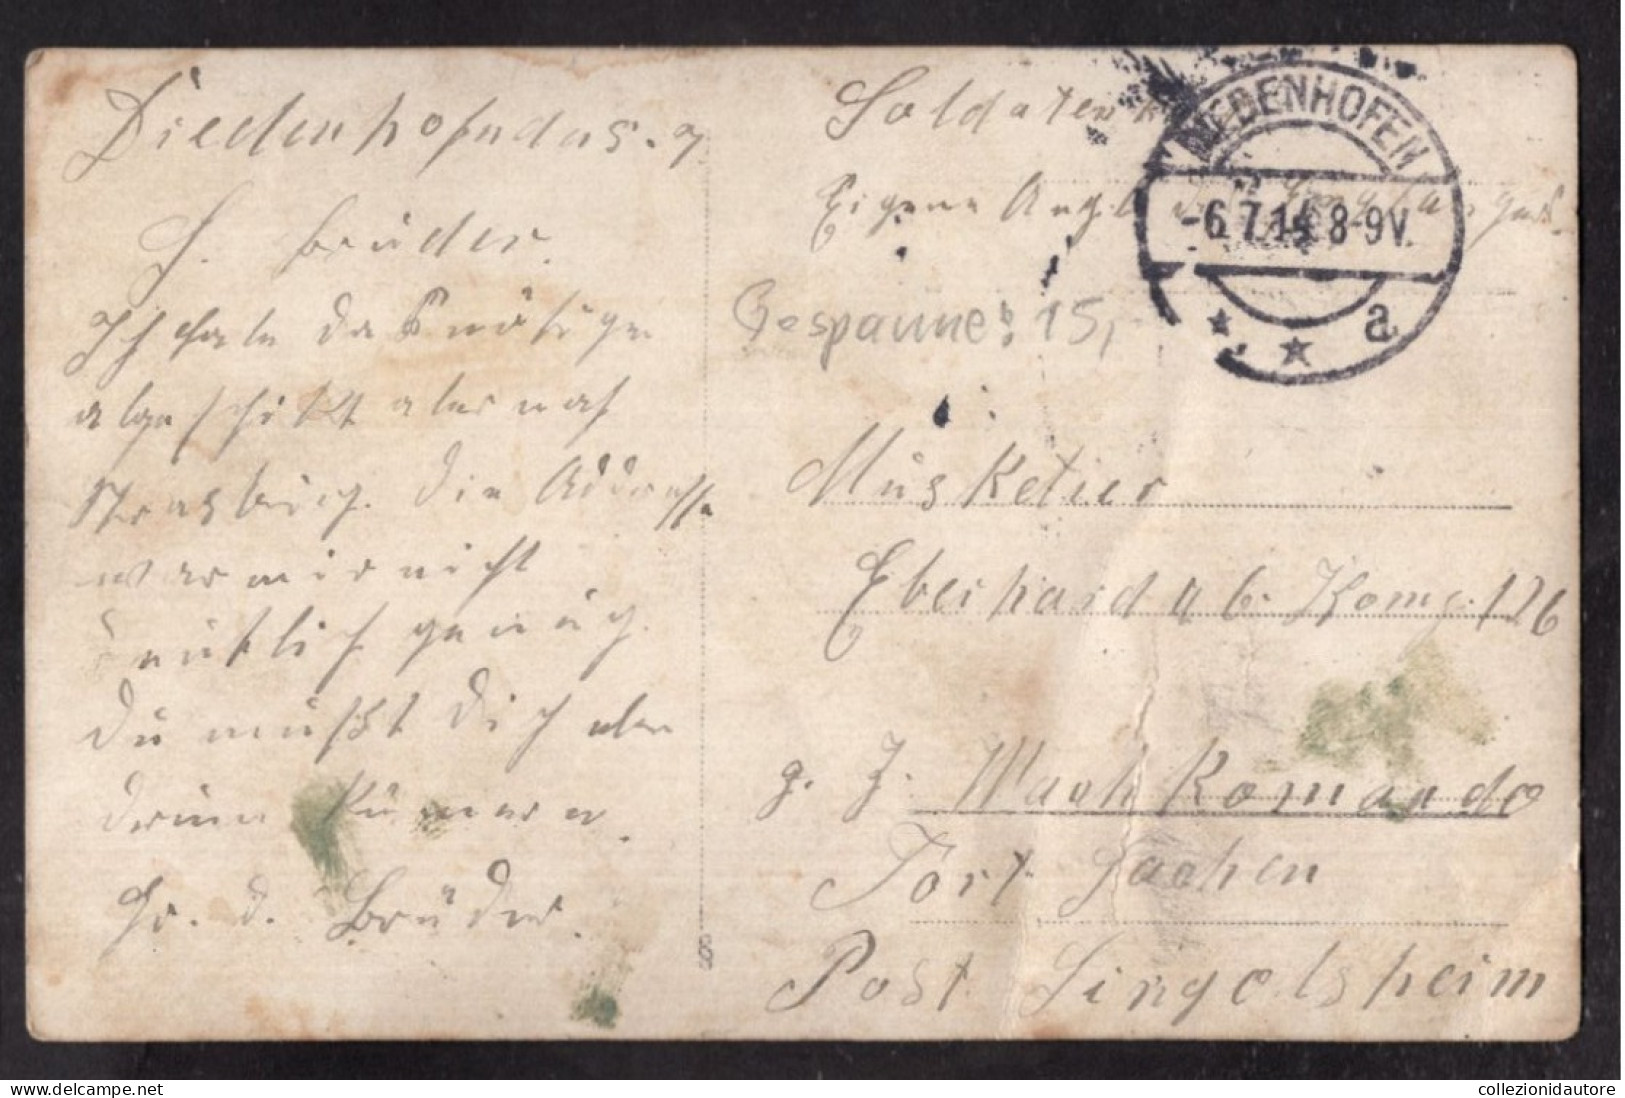 Diedenhofn das. 7
L. Brüder.
Ich habe das nötige
abgeschikt aber nach
Strasburg. Die Addresse
war mir nicht
deutlich genüg.
Du mußt Dich aber
drum kümmern.
Gr. d. Brüder.
Soldaten
Eigene Ang.
DIEDENHOFEN
-6.7.14 8-9V.
a
15,
Musketier
Eberhard 4 b. Komg. 126
z. Z. Wach Komando
Fort Sachen
Post Lingolsheim
collezionidautore